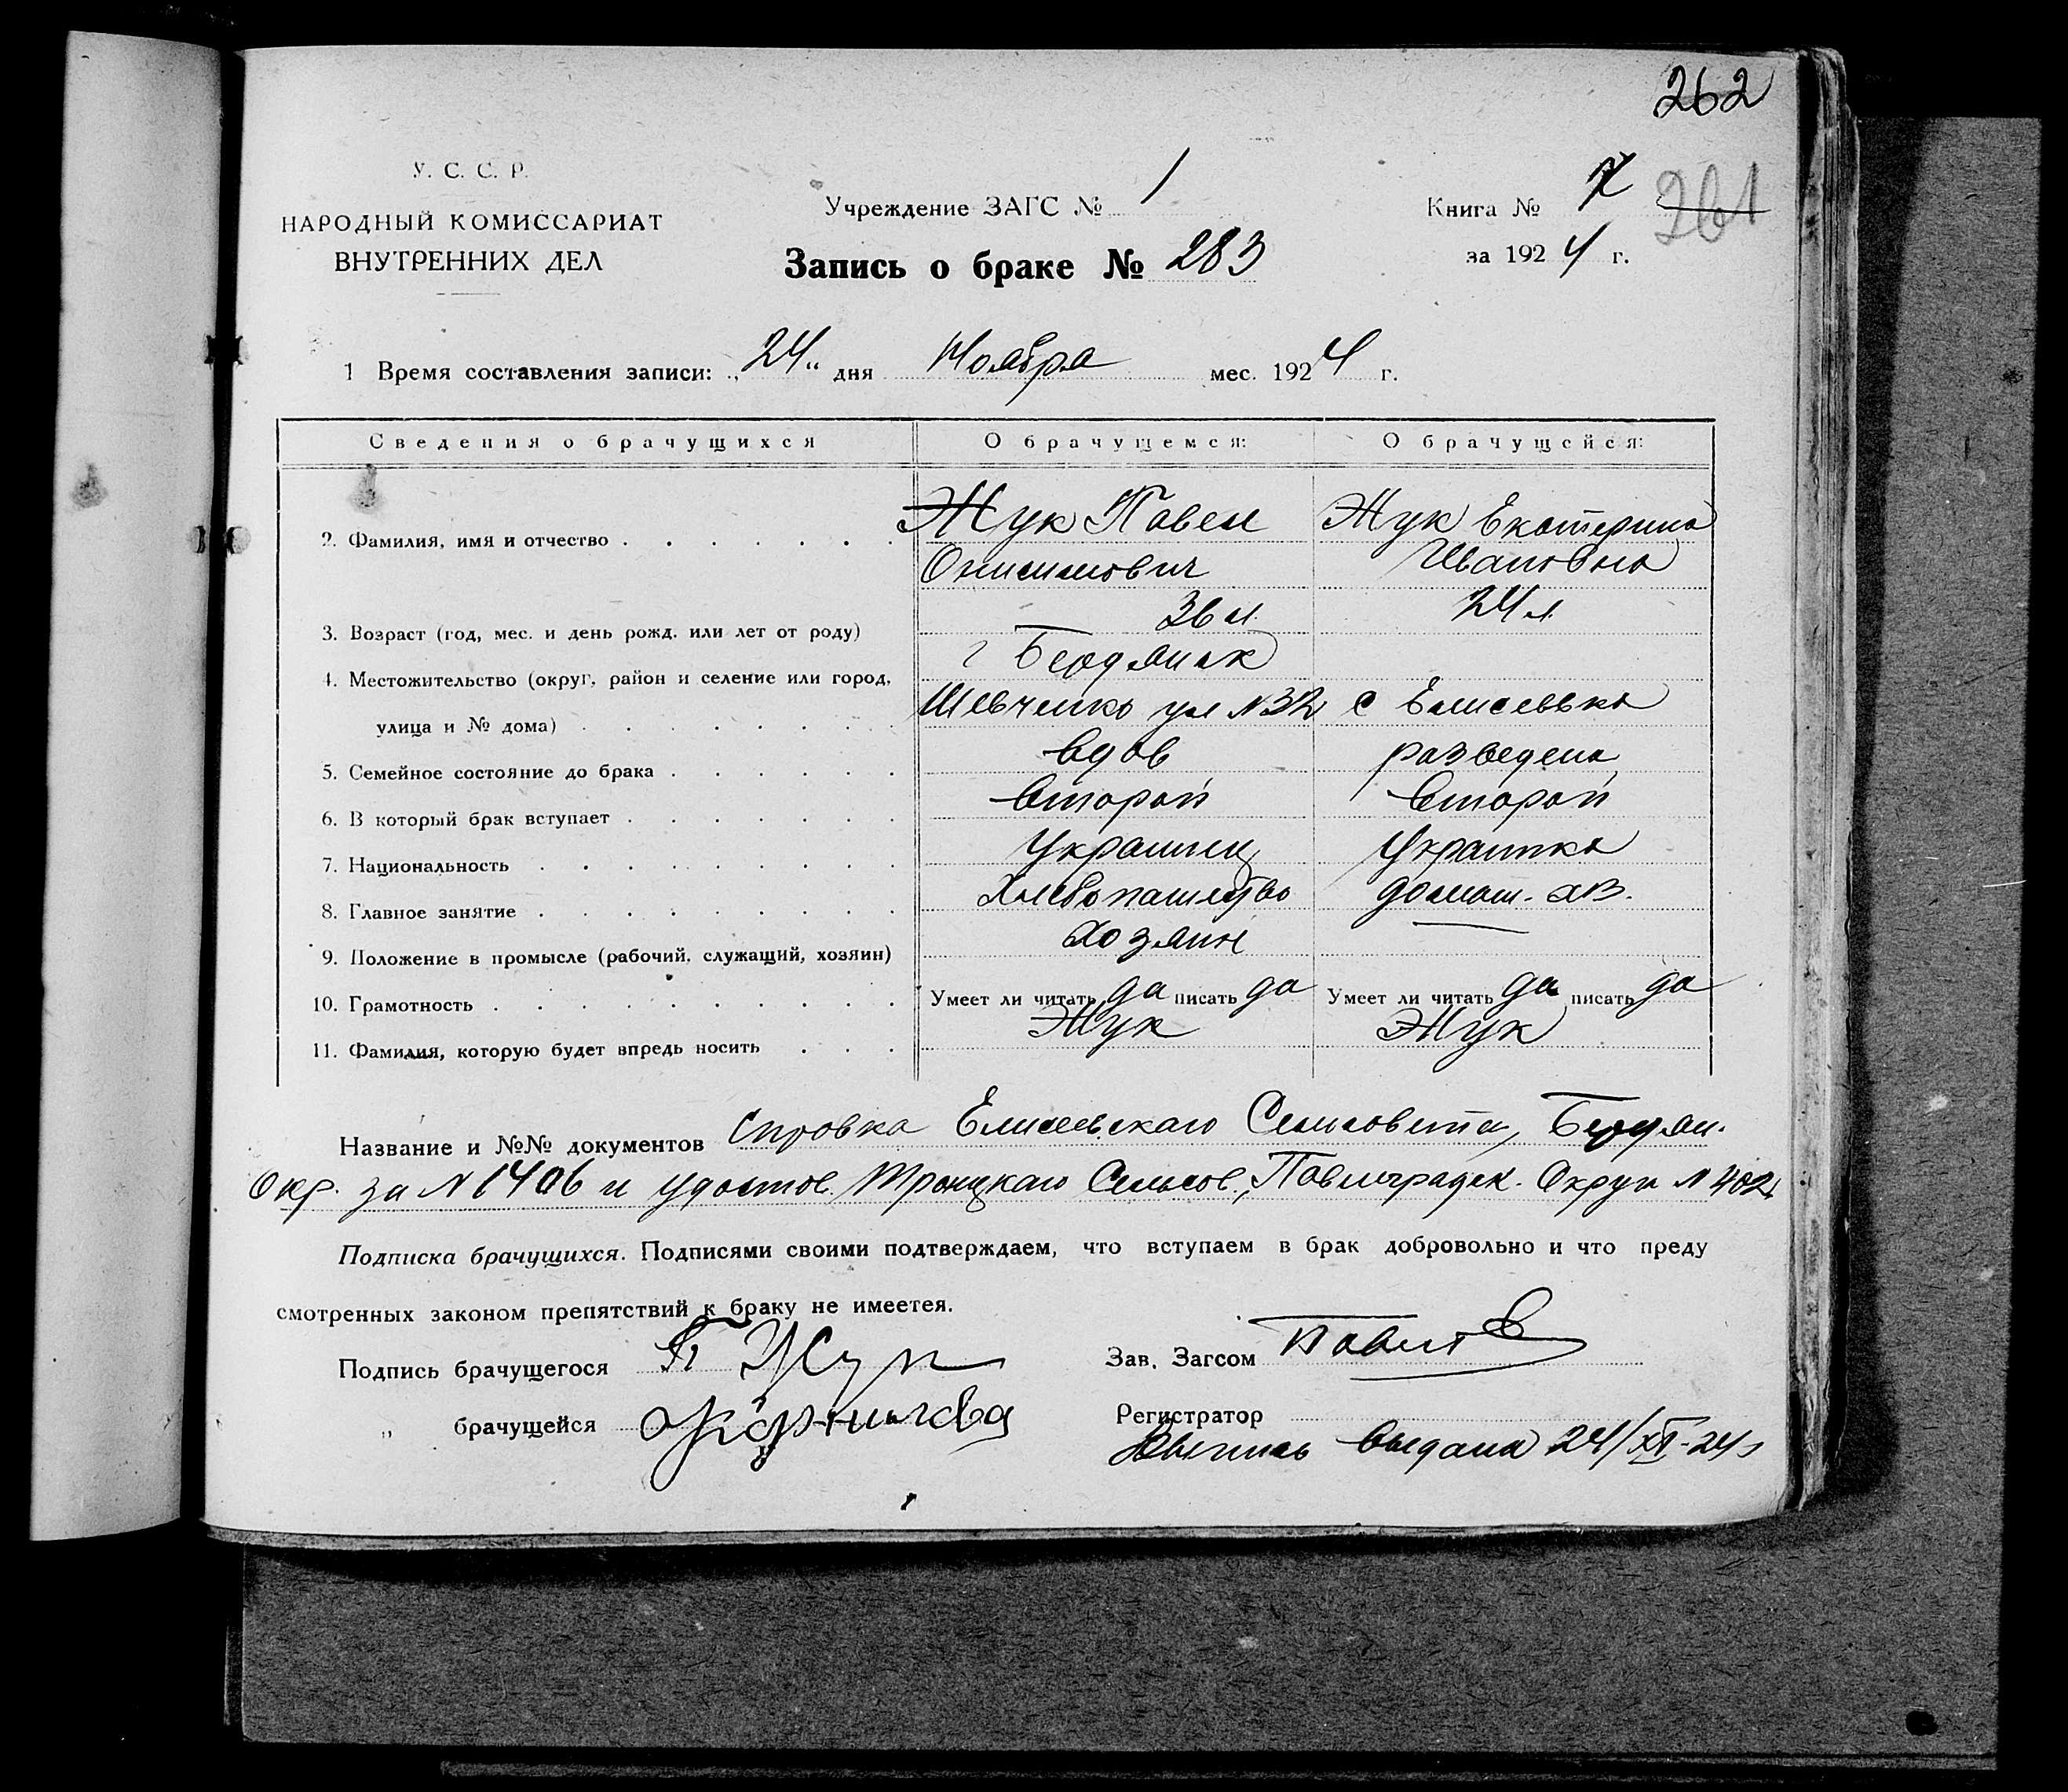 262
У. С. С. Р.
НАРОДНЫЙ КОМИССАРИАТ
ВНУТРЕННИХ ДЕЛ
Учреждение ЗАГС № 1
Книга № 7
261
Запись о браке № 283
за 1924 г.
1 Время составления записи: „24“ дня Ноября мес. 1924 г.
Сведения о брачущихся О брачущемся: О брачущейся:
2. Фамилия, имя и отчество Жук Павел Жук Екатерина
Онисимович Ивановна
3. Возраст (год, мес. и день рожд. или лет от роду) 36 л. 24 л.
4. Местожительство (округ, район и селение или город, г Бердянск
улица и № дома) Шевченко ул N 32 с Елисеевка
5. Семейное состояние до брака вдов разведена
6. В который брак вступает Второй Второй
7. Национальность Украинец Украинка
8. Главное занятие Хлебопашество домаш. хз.
9. Положение в промысле (рабочий, служащий, хозяин) Хозяин —
10. Грамотность Умеет ли читать да писать да Умеет ли читать да писать да
11. Фамилия, которую будет впредь носить Жук Жук
Название и №№ документов Справка Елисеевскаго Сельсовета, Бердян.
Окр. за N 1406 и удостов. Троицкаго Сельсов., Павлоградск. Округа N 402
Подписка брачущихся. Подписями своими подтверждаем, что вступаем в брак добровольно и что преду
смотренных законом препятствий к браку не имеется.
Подпись брачущегося П Жук Зав. Загсом
„ брачущейся Регистратор
выдана 24/XI-24 г